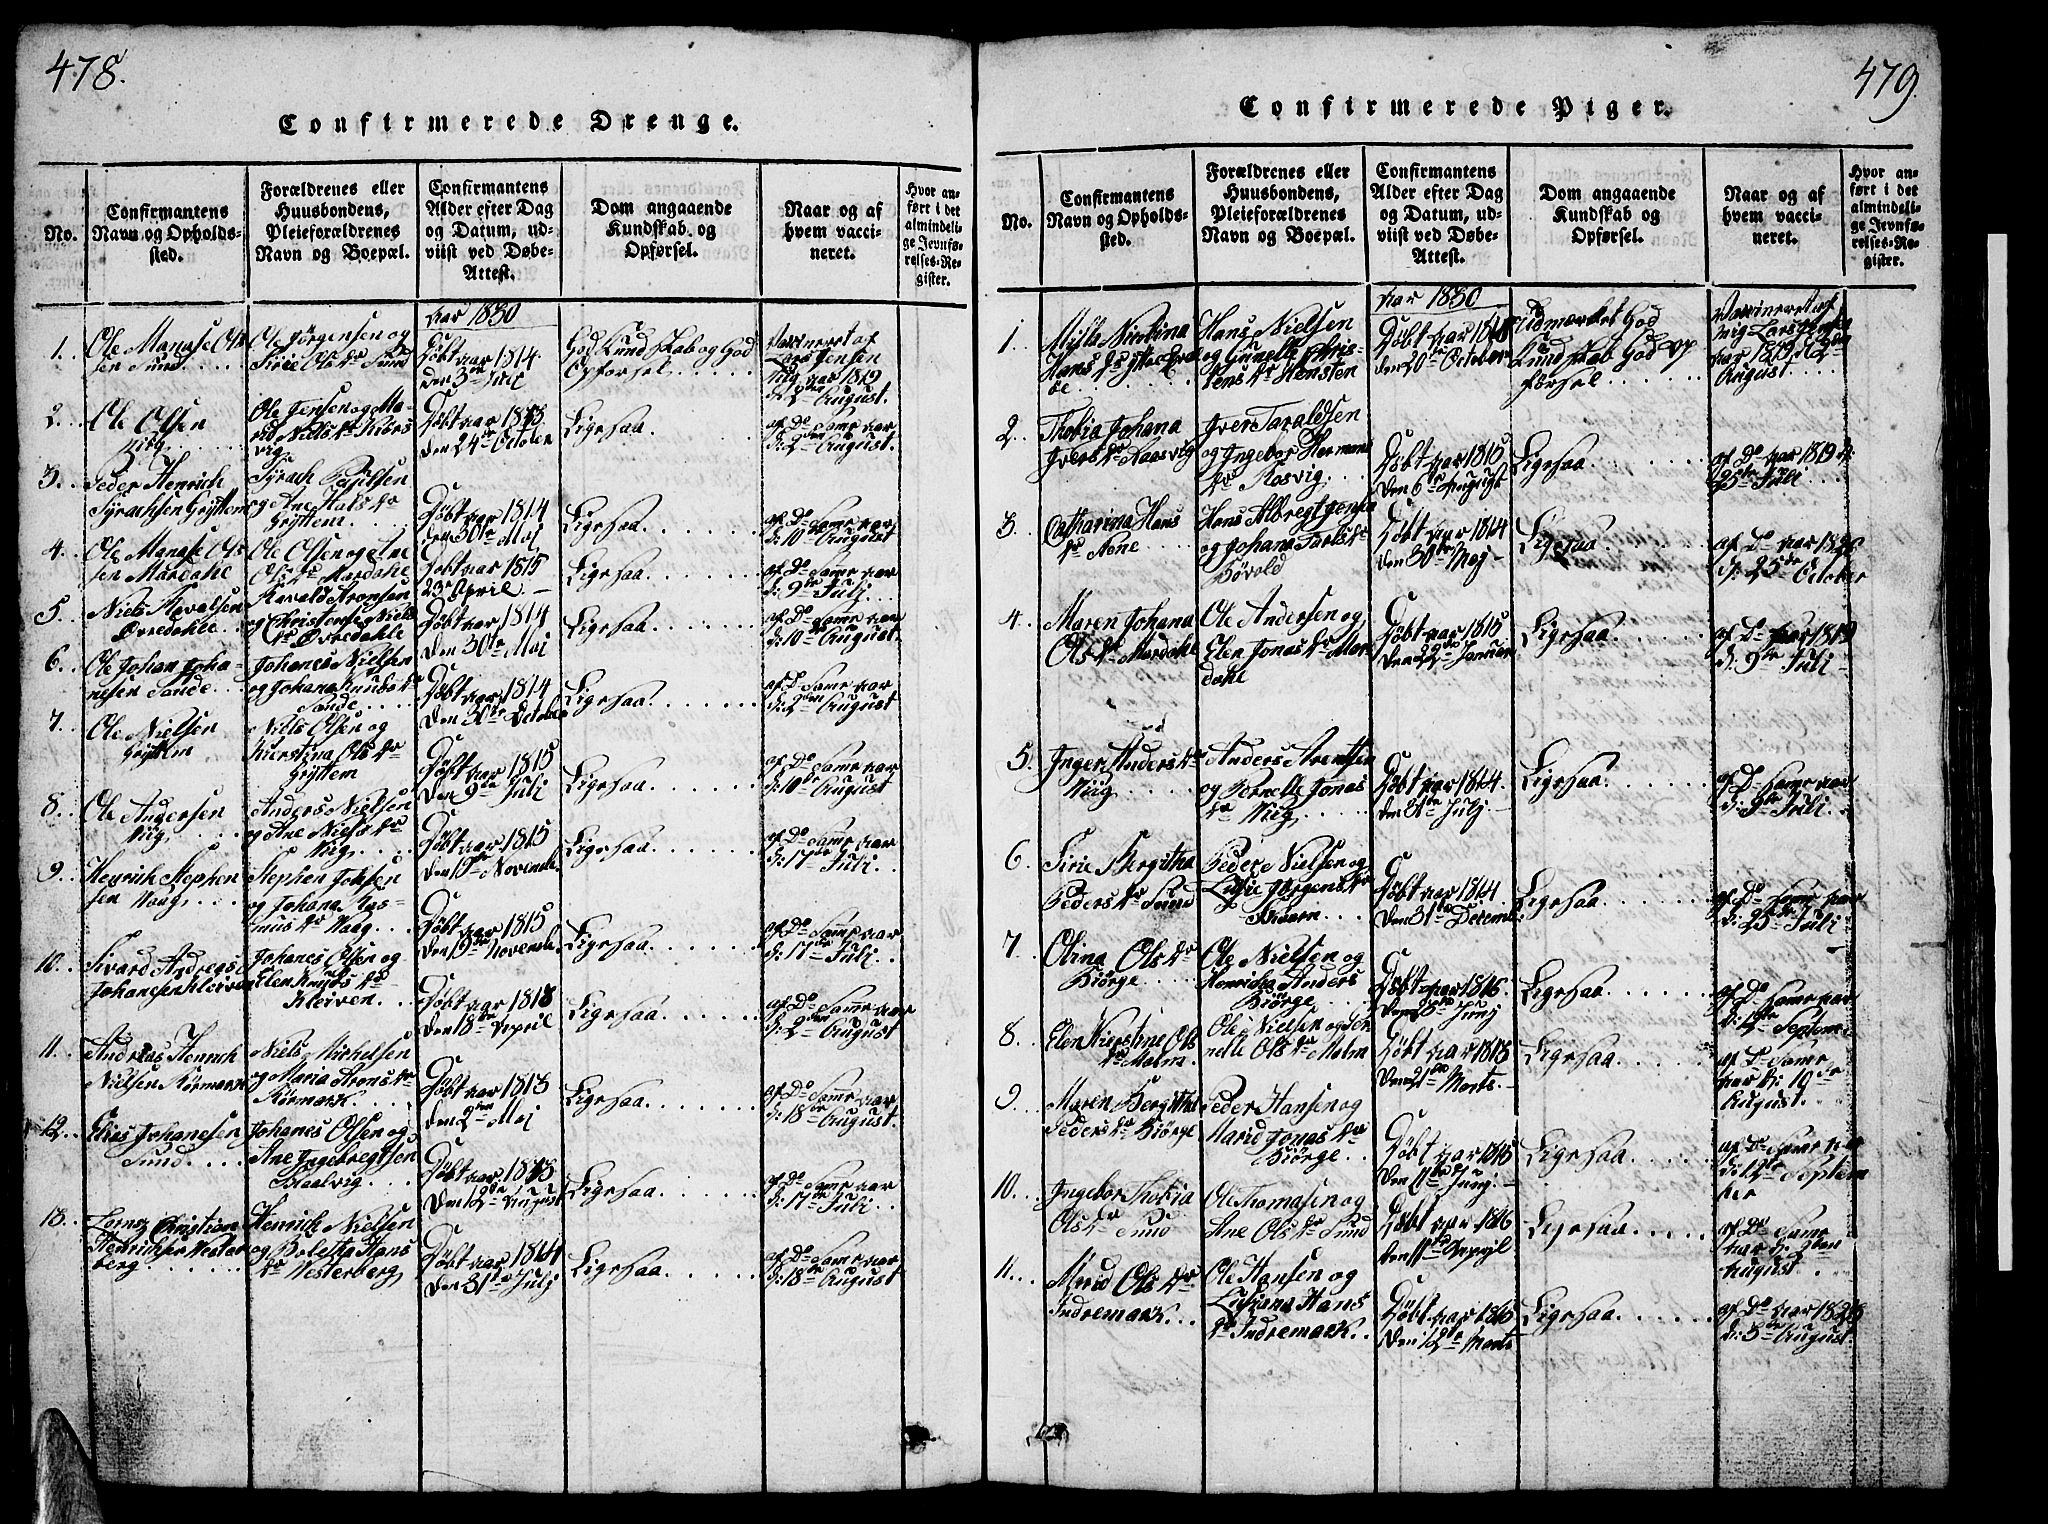 478.
Confirmerede Drenge.
No.
Confirmantens Navn og Opholdssted.
Forældrenes eller Huusbondens, Pleieforældrenes Navn og Boepæl.
Confirmantens Alder efter Dag og Datum, udviist ved Døbe-Attest.
Dom angaaende Kundskab og Opførsel.
Naar og af hvem vaccineret.
Hvor anført i det almindelige Jevnførelses-Register.
Aar 1830
1. Ole Manase Olsen Sund
Ole Jørgensen og Sirie Olsdr Sund
Døbt aar 1814 den 3die Juli
God Kundskab og God Opførsel
Vaccineret af Lars Jensen Viig aar 1819 d: 2den August.
2. Ole Olsen Viig
Ole Jensen og Marid Nielsdr Kiørsvig
Døbt aar 1813 den 24de Octobr
Ligesaa
af Do Same aar d: 2den August.
3. Peder Henrich Syrachsen Gryttem
Syrach Poulsen og Ane Halsdr Gryttem
Døbt aar 1814 den 30te Maj
Ligesaa
af Do Same aar d: 10de August
4. Ole Manase Olsen Mardahl
Ole Olsen og Ane Olsdr Mardahl
Døbt aar 1815 23de April
Ligesaa
af Do Same aar d: 9de Juli
5. Niels Havalsen Øvredahle
Havald Aronsen og Christense Nielsdr Øvredahle
Døbt aar 1814 den 30te Maj
Ligesaa
af Do Same aar d: 10de August.
6. Ole Johan Johanesen Sande
Johanes Nielsen og Johana Knudsdr Sande
Døbt aar 1814 den 30te October
Ligesaa
af Do Same aar d: 2den August
7. Ole Nielsen Gryttem
Niels Olsen og Kierstina Olsdr Gryttem
Døbt aar 1815 den 9de Juli
Ligesaa
af Do Same aar d: 10de August
8. Ole Andersen Viig
Anders Nielsen og Ane Nielsdr Viig
Døbt aar 1815 den 19de Novembr
Ligesaa
af Do Same aar d: 17de Juli
9. Henrich Stephensen Vaag
Stephen Johsen og Johana Rasmusdr Vaag
Døbt aar 1815 den 19de Novembr
Ligesaa
af Do Same aar d: 17de Juli
10. Sivard Andreas Johanesen Kleiven
Johanes Olsen og Elen Knudsdr Kleiven
Døbt aar 1813 den 18de April
Ligesaa
af Do Same aar d: 2den August
11. Andreas Henrich Nielsen Kørmark
Niels Michelsen og Maria Aronsdr Kørmark
Døbt aar 1813 den 2den Maj
Ligesaa
af Do Same aar d: 18de August
12. Elias Johanesen Sund
Johanes Olsen og Ane Ingebregtsen Staalvig
Døbt aar 1813 den 12te August
Ligesaa
af Do Same aar d: 17de Juli
13. Lornz Christian Henrichsen Vesterberg
Henrich Nielsen og Boletta Hansdr Vesterberg
Døbt aar 1814 den 31te Julj
Ligesaa
af Do Same aar d: 18de August
479.
Confirmerede Piger.
No.
Confirmantens Navn og Opholdssted.
Forældrenes eller Huusbondens, Pleieforældrenes Navn og Boepæl.
Confirmantens Alder efter Dag og Datum, udviist ved Døbe-Attest.
Dom angaaende Kundskab og Opførsel.
Naar og af hvem vaccineret.
Hvor anført i det almindelige Jevnførelses-Register.
Aar 1830
1. Hansdr
Hans Nielsen og Gunelle Christensdr Stensten
den 20de October
Udmærket God Kundskab God Opførsel
Vaccineret af Lars Jensen aar 1819 12te August
2. Thobia Johana Iversdr Aasvig
Iver Taraldsen og Ingebor Hermansdr Rosvig
Døbt aar 1815 den 6te August
Ligesaa
af Do aar 1819 d: 25de Juli
3. Catharina Hansdr None
Hans Albregtsen og Johana Bøvold
Døbt aar 1814 den 30te Maj
Ligesaa
af Do d: 25de October
4. Maren Johana Olsdr Mardahl
Ole Andersen og Elen Jonasdr Mardahl
Døbt aar 1815 den 22de Januar
Ligesaa
af Do aar 1819 d: 9de Juli
5. Inger Andersdr Viig
Anders Arentsen og Pernelle Jonasdr Viig
Døbt aar 1814 den 31te Julj
Ligesaa
af Do Same aar d: 9de Juli
6. Sirie Bergitha Pedersdr Sund
Peder Nielsen og Lusie Jørgensdr
Døbt aar 1814 den 31te Decembr
Ligesaa
af Do Same aar d: 25de Juli
7. Olina Olsdr Biørge
Ole Nielsen og Henricha Anders Biørge
Døbt aar 1816 den Junij
Ligesaa
af Do Same aar d: 12te Septem
8. Elen Kierstine Olsdr Malm
Ole Nielsen og Pernelle Olsdr Malm
Døbt aar 1813 den 21de Marts
Ligesaa
af Do Same aar d: 10de August.
9. Maren Bergitha Pedersdr Biørge
Peder Hansen og Marid Jonasdr Biørge
Døbt aar 1815 den 11te Junj
Ligesaa
af Do Same aar d: 12te September
10. Ingebor Thobia Olsdr Sund
Ole Thomasen og Ane Olsdr Sund
Døbt aar 1816 den 11te April
Ligesaa
af Do Same aar d: 2den August
11. Marid Olsdr Indremark
Ole Hansen og Lusiana Hansdr Indremark
Døbt aar 1815 den 12te Marts
Ligesaa
af Do aar d: 5te August